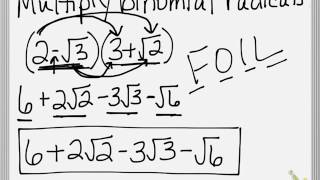 Multiply Binomial radicals
(2-√3)(3+√2) FOIL
6+2√2-3√3-√6
6+2√2-3√3-√6